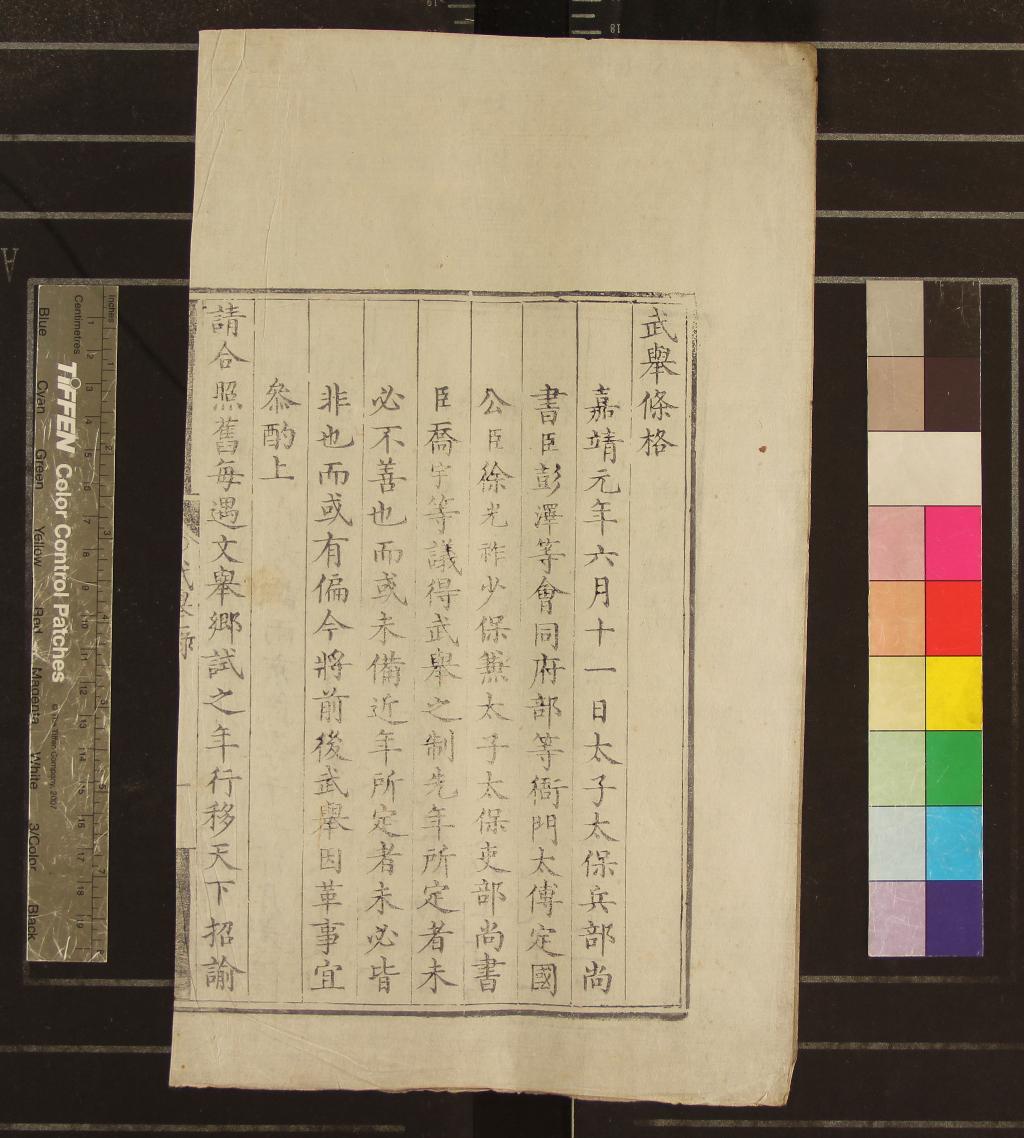 武舉條格
嘉靖元年六月十一日太子太保兵部尚
書臣彭澤等會同府部等衙門太傅定國
公臣徐光祚少保兼太子太保吏部尚書
臣喬宇等議得武舉之制先年所定者未
必不善也而或未備近年所定者未必皆
非也而或有偏今將前後武舉因革事宜
叅酌上
請合照舊每遇文舉鄉試之年行移天下招諭
武舉
Inches
Centimetres
TIFFEN Color Control Patches
© The Tiffen Company, 2007
Blue Cyan Green Yellow Red Magenta White 3/Color Black
A
18
19